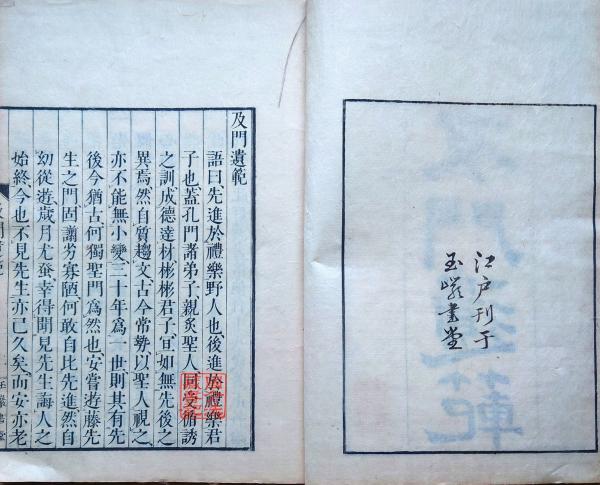 江戶刊于
玉巖書堂
及門遺範
語曰先進於禮樂野人也後進於禮樂君
子也蓋孔門諸弟子親炙聖人同受循誘
之訓成德達材彬彬君子宜如無先後之
異焉然自質趨文古今常勢以聖人視之
亦不能無小變三十年爲一世則其有先
後今猶古何獨聖門爲然也安嘗遊藤先
生之門固譾劣寡陋何敢自比先進然自
幼從遊歲月尤蚤幸得聞見先生誨人之
始終今也不見先生亦已久矣而安亦老